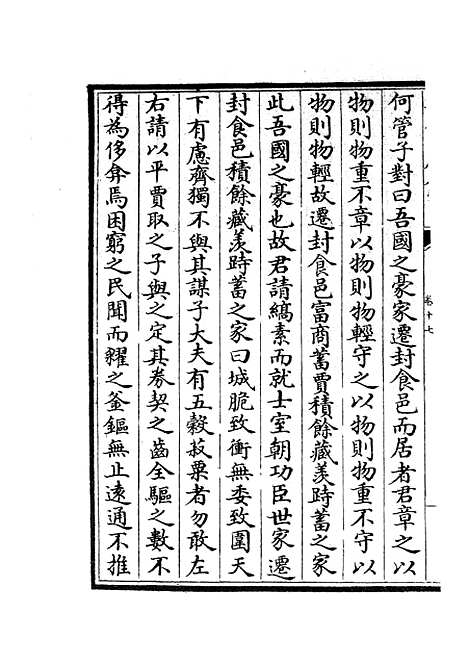 何管子對曰吾國之豪家遷封食邑而居者君章之以
物則物重不章以物則物輕守之以物則物重不守以
物則物輕故遷封食邑富商蓄賈積餘藏羨跱蓄之家
此吾國之豪也故君請縞素而就士室朝功臣世家遷
封食邑積餘藏羨跱蓄之家曰城脆致衝無委致圍天
下有慮齊獨不與其謀子大夫有五穀菽粟者勿敢左
右請以平賈取之子與之定其券契之齒釜鏂之數不
得為侈弇焉困窮之民聞而糴之釜鏂無止遠通不推
卷十七